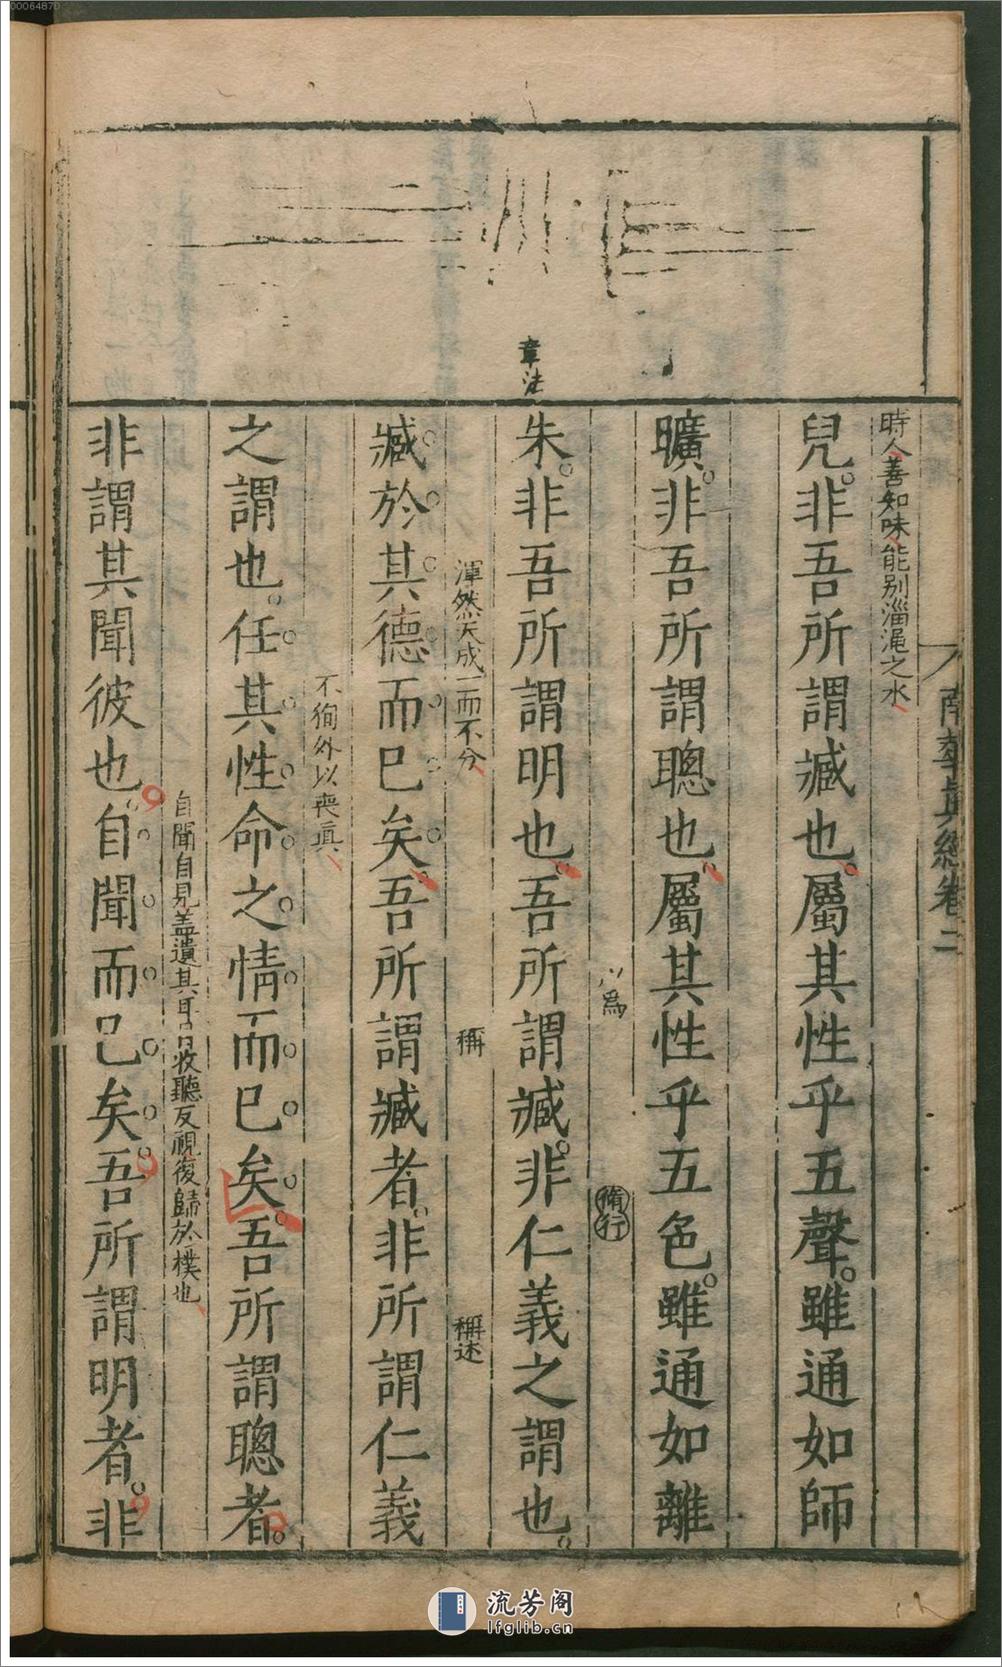 00064870
南華真經卷二
時人善知味能别淄澠之水
兒非吾所謂臧也屬其性乎五聲雖通如師
曠非吾所謂聰也屬其性乎五色雖通如離
為
脩行
章法
朱非吾所謂明也吾所謂臧非仁義之謂也
渾然天成一而不分
稱
稱述
臧於其德而巳矣吾所謂臧者非所謂仁義
不徇外以喪真
之謂也任其性命之情而巳矣吾所謂聰者
自聞自見盖遺其耳目收聽反視復歸於樸也
非謂其聞彼也自聞而巳矣吾所謂明者非
流芳阁
lfglib.cn